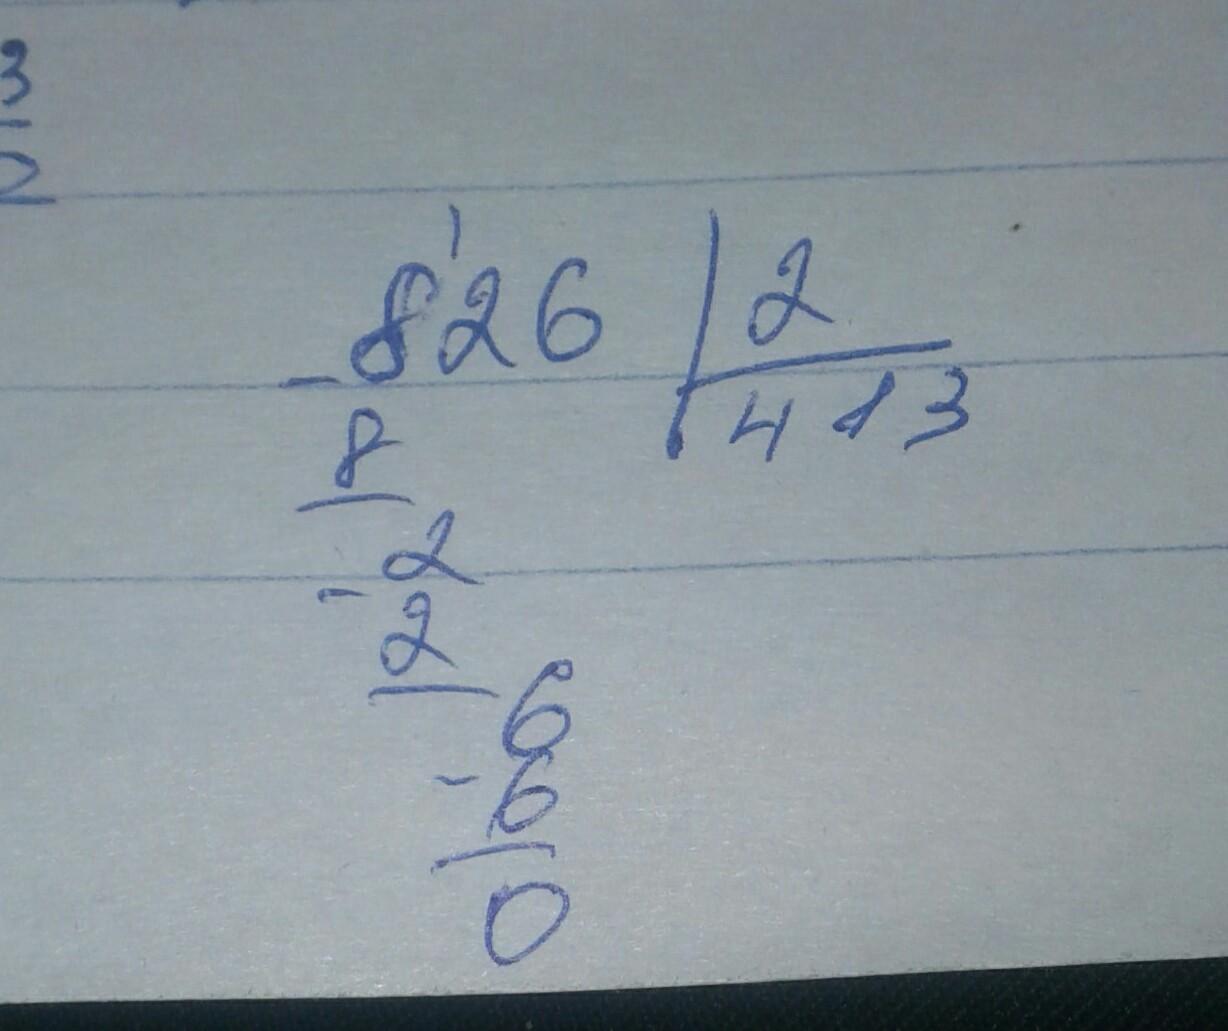 3
2
826 | 2
- 8 413
2
- 2
6
- 6
0